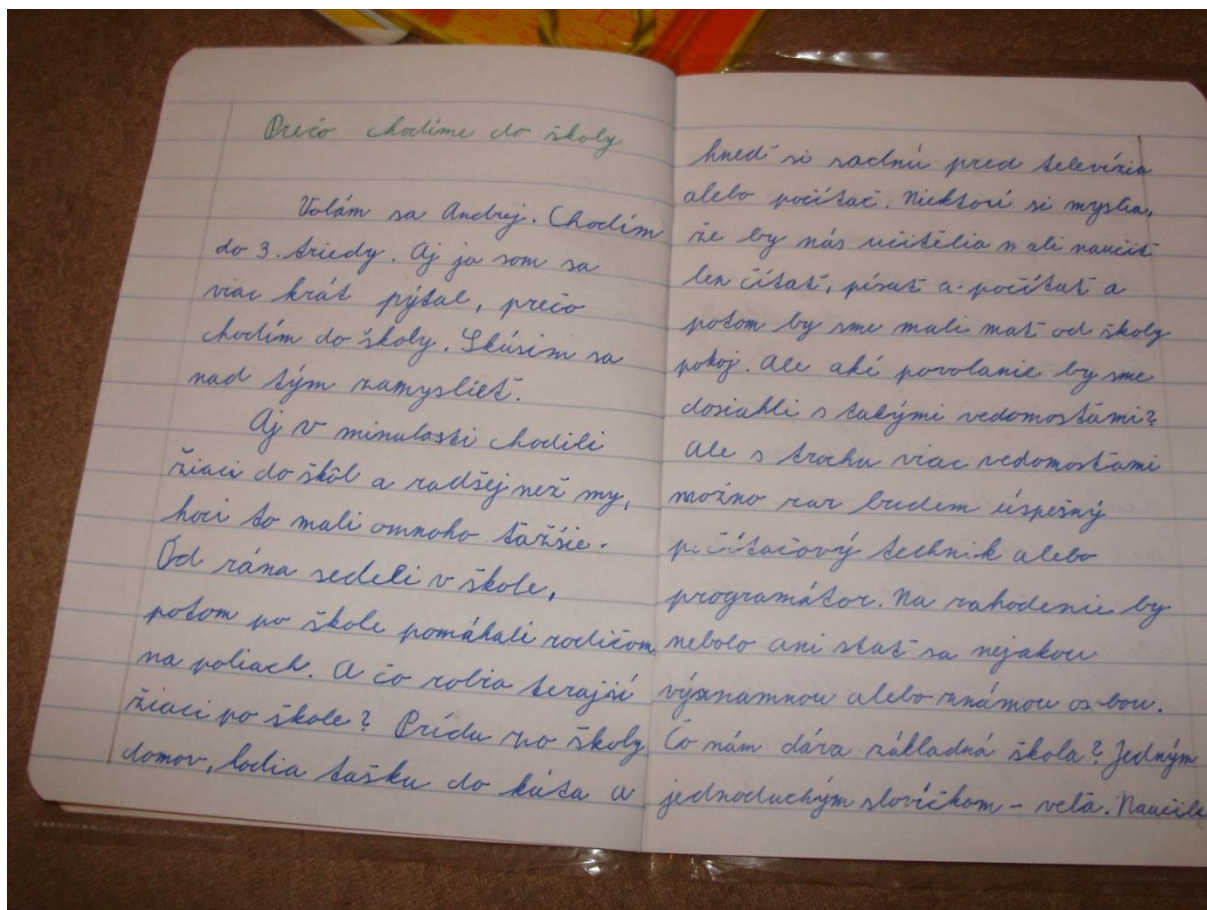 Prečo chodíme do školy
Volám sa Andrej. Chodím
do 3. triedy. Aj ja som sa
viac krát pýtal, prečo
chodím do školy. Skúsim sa
nad tým zamyslieť.
Aj v minulosti chodili
žiaci do škôl a radšej než my,
hoci to mali omnoho ťažšie.
Od rána sedeli v škole,
potom po škole pomáhali rodičom
na poliach. A čo robia terajší
žiaci po škole? Prídu zo školy
domov, hodia tašku do kúta a
hneď si sadnú pred televízia
alebo počítač. Niektorí si myslia,
že by nás učitélia mali naučiť
len čítať, písať a počítať a
potom by sme mali mať od školy
pokoj. Ale aké povolanie by sme
dosiahli s takými vedomosťami?
Ale s trochu viac vedomosťami
možno raz budem úspešný
počítačový technik alebo
programátor. Na zahodenie by
nebolo ani stať sa nejakou
významnou alebo známou osobou.
Čo nám dáva základná škola? Jedným
jednoduchým slovíčkom - veľa. Naučila